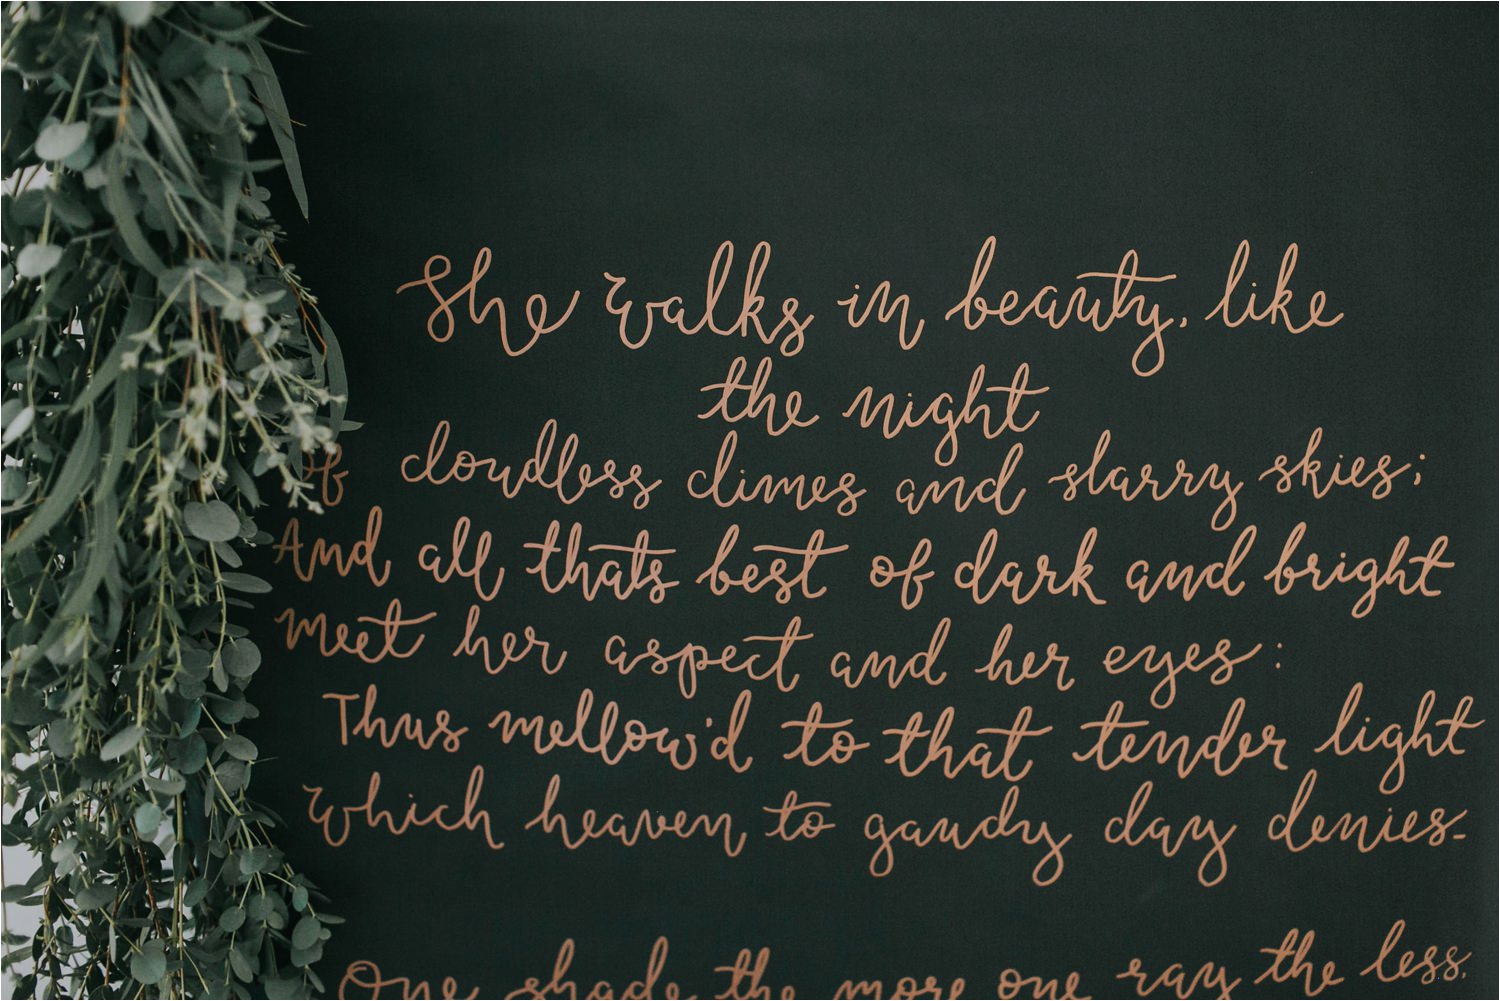 She walks in beauty, like
the night
of cloudless climes and starry skies;
And all thats best of dark and bright
meet her aspect and her eyes:
Thus mellow'd to that tender light
which heaven to gaudy day denies.
One shade the more one ray the less,